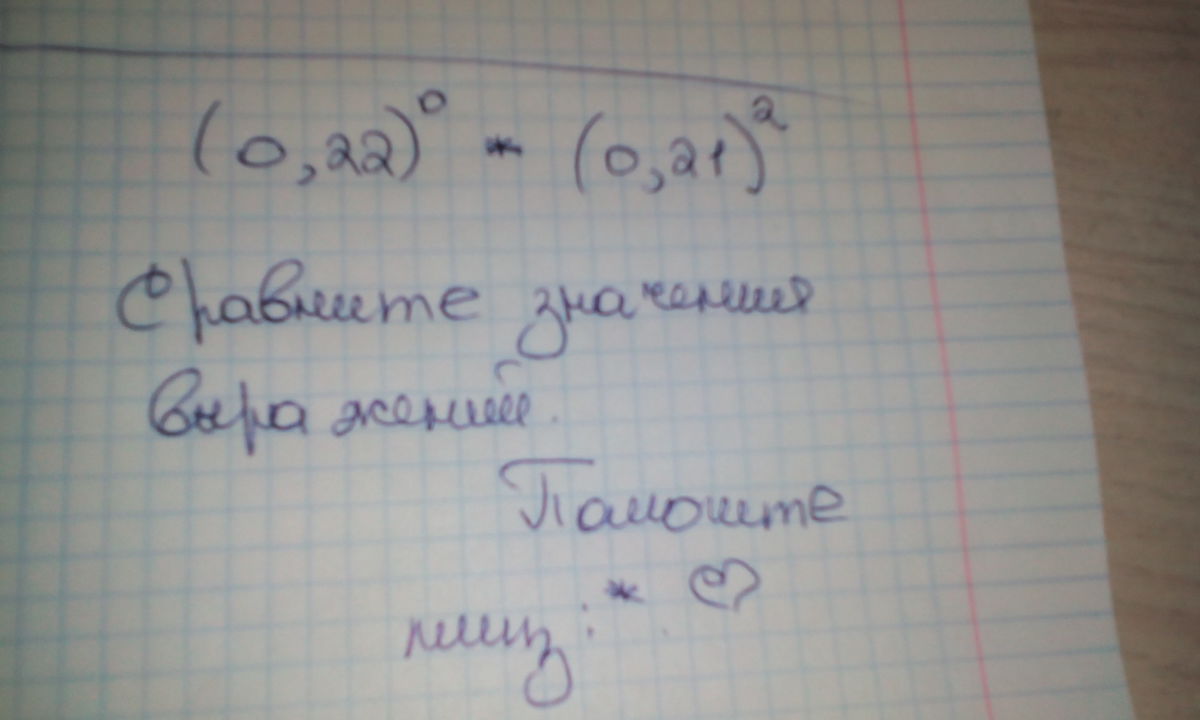 (0,22)⁰ * (0,21)²
Сравните значения
выражений.
Памоште
плиз :* ♡